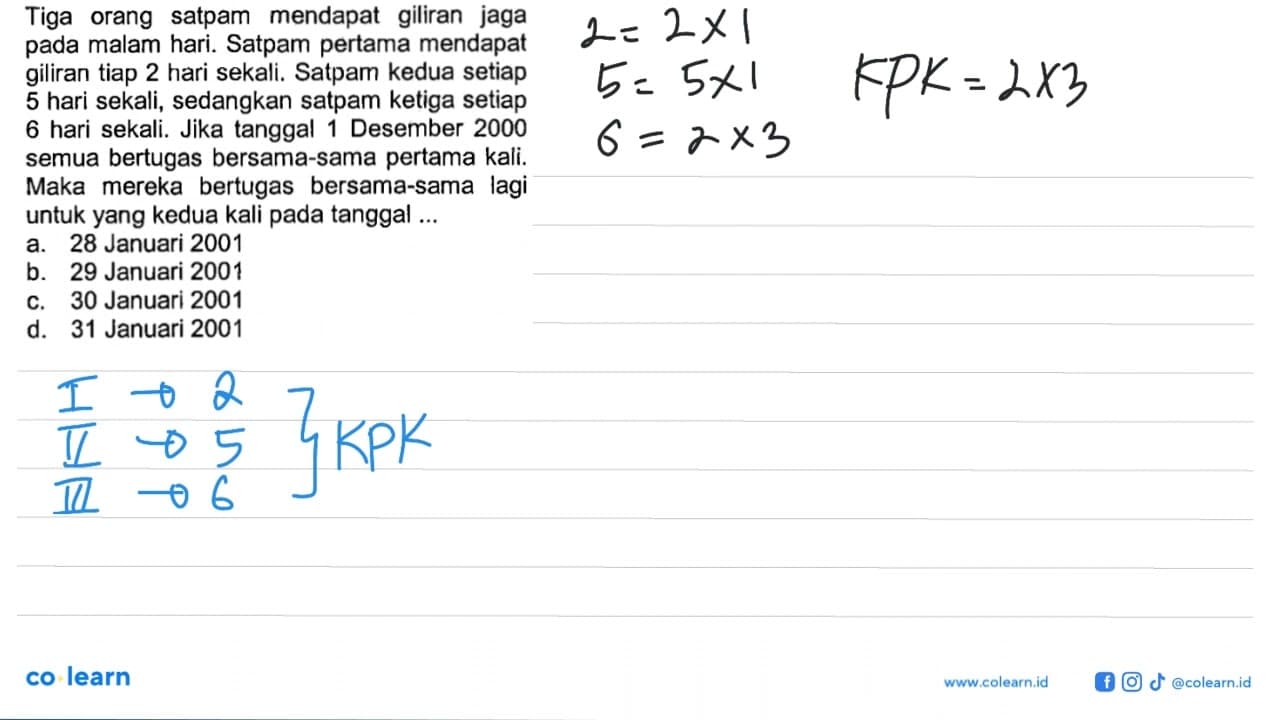 Tiga orang satpam mendapat giliran jaga
pada malam hari. Satpam pertama mendapat
giliran tiap 2 hari sekali. Satpam kedua setiap
5 hari sekali, sedangkan satpam ketiga setiap
6 hari sekali. Jika tanggal 1 Desember 2000
semua bertugas bersama-sama pertama kali.
Maka mereka bertugas bersama-sama lagi
untuk yang kedua kali pada tanggal ...
a. 28 Januari 2001
b. 29 Januari 2001
c. 30 Januari 2001
d. 31 Januari 2001
2 = 2 x 1
5 = 5 x 1
6 = 2 x 3
KPK = 2 x 3
I → 2
II → 5
III → 6
} KPK
co·learn
www.colearn.id
@colearn.id